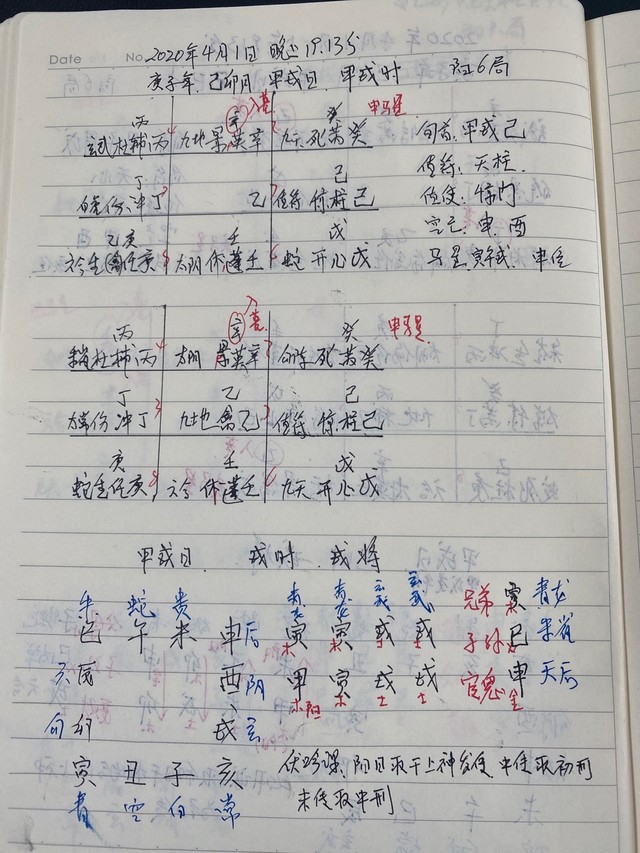 Date No. 2020年4月1日 晚上19.13分
庚子年. 己卯月 甲戌日. 甲戌时 阳6局
丙 辛 入墓 癸 申马星
玄武杜辅丙 4 九地景英辛 九天死芮癸 旬首.甲戌己
丁 己 值符.天柱
白虎伤冲丁 乙 值符惊柱己 值使.惊门
乙庚 壬 戊 空亡.申.酉
六合生禽任庚 8 太阴休蓬壬 蛇开心戊 6 马星.寅午戌 申位
丙 辛 入墓 癸 申马星
朱雀杜辅丙 4 太阴景英辛 勾陈死芮癸
丁 乙 己
太常伤冲丁 3 九地禽乙 值符惊柱己
庚 壬 戊
蛇生任庚 8 六合休蓬壬 九天开心戊 6
甲戌日. 戌时. 戌将
朱 蛇 贵 青龙 青龙 玄武 玄武 兄弟 寅 青龙
巳 午 未 申 后 寅 寅 戌 戌 子孙 巳 朱雀
六 辰 酉 阴 甲 寅 戌 戌 官鬼 申 天后
勾 卯 戌 玄
寅 丑 子 亥 伏吟课、阳日取干上神发传 中传取初刑
青 空 白 常 末传取中刑